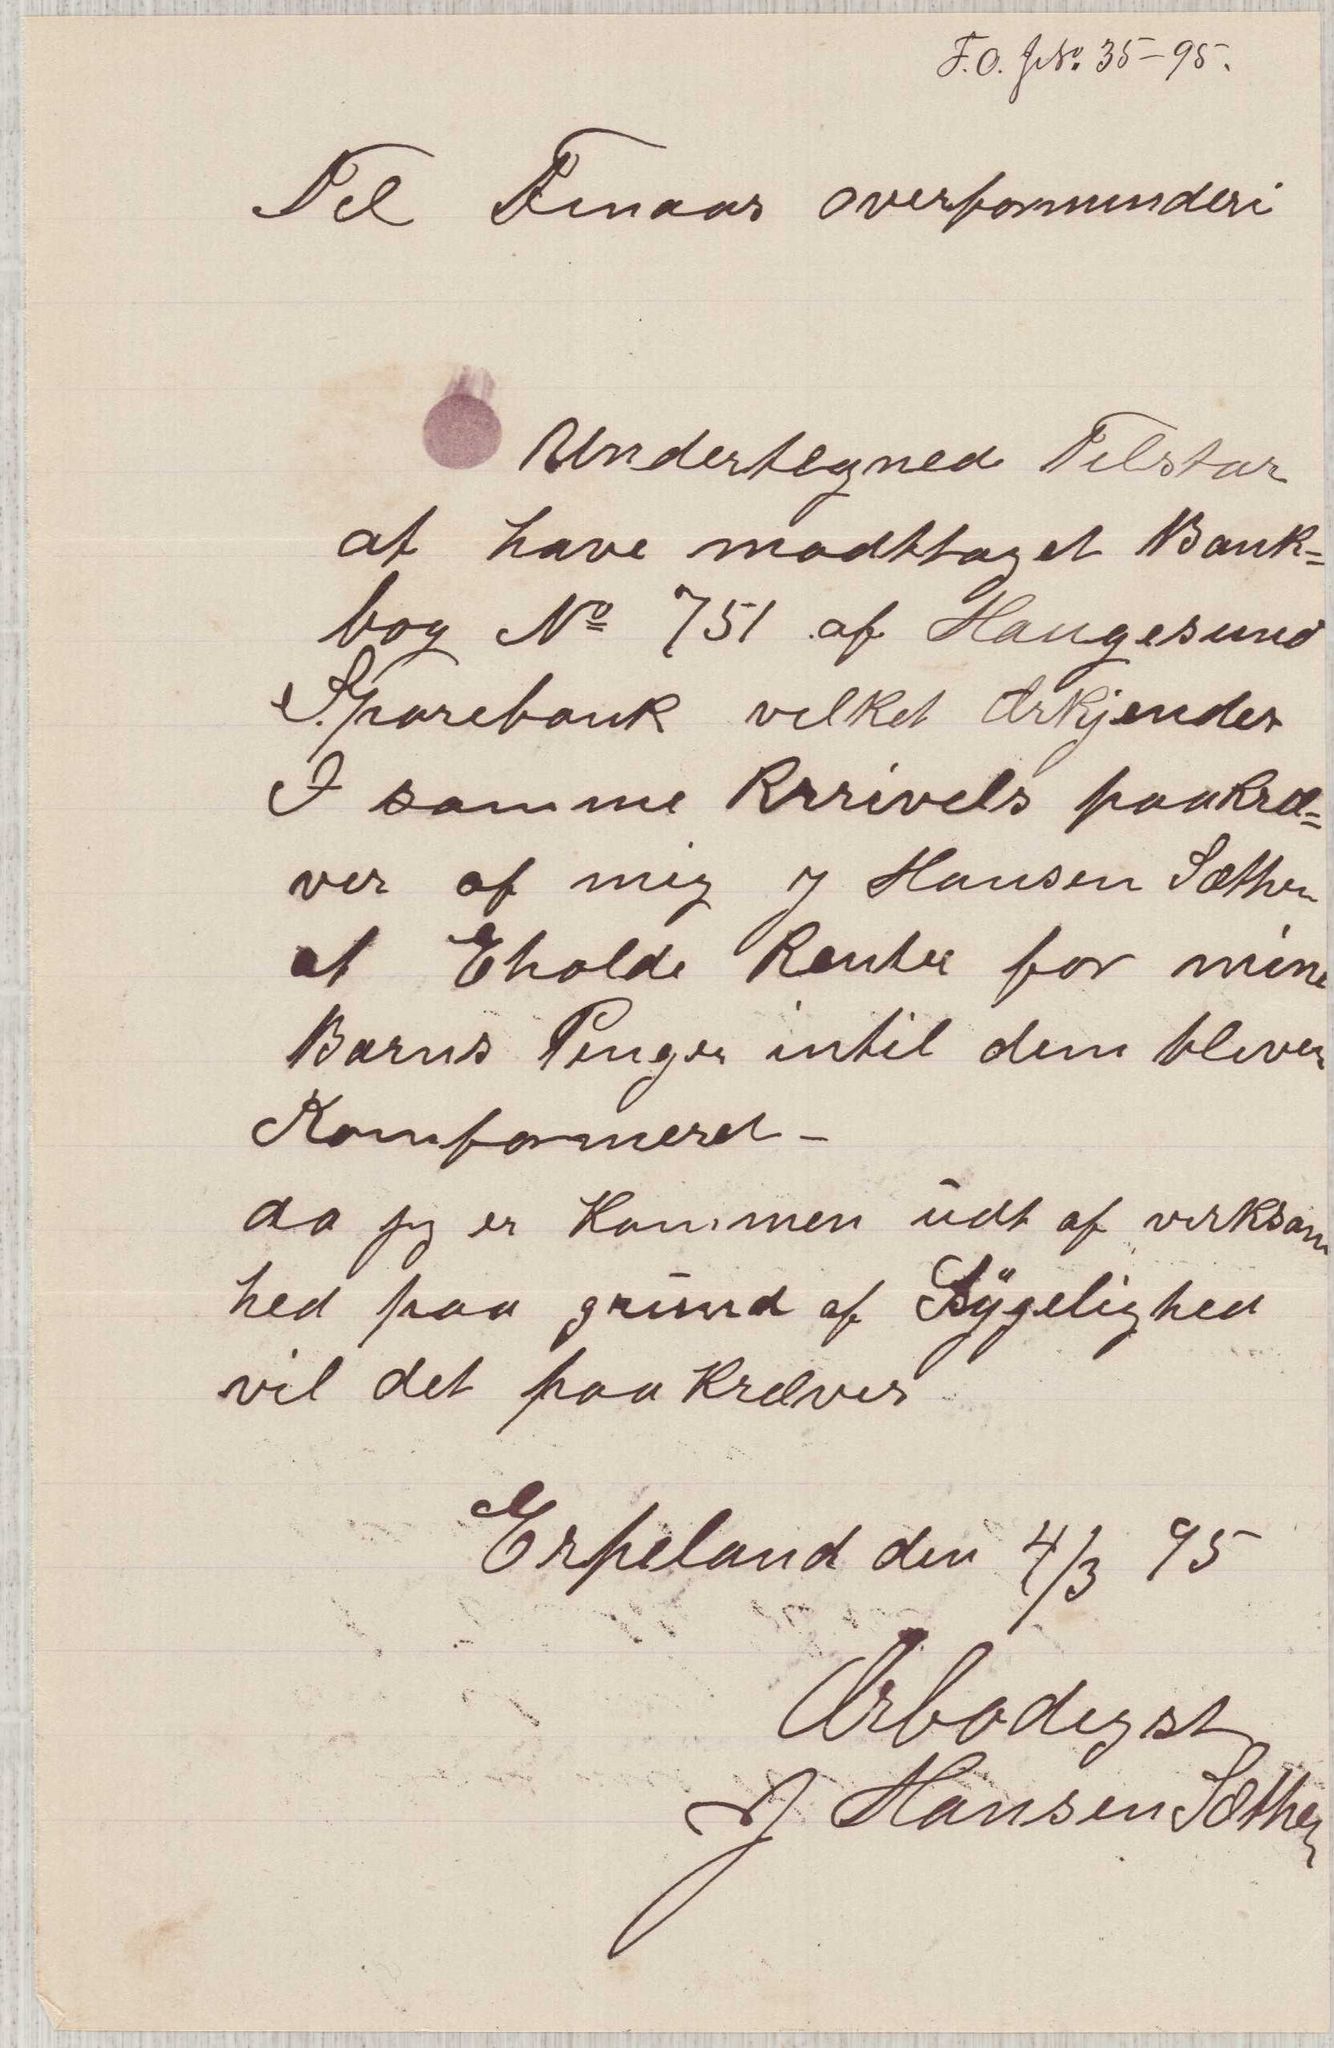 F.O. JNo. 35-95.
Til Finaas overformunderi
Undertegned Tilstar
at have modttaget Bank=
bog No 751 af Haugesund
Sparebank vilket Ærkjendes
I samme Rrrivels paakræ=
ver af mig J Hansen Sæther
at Eholde Renter for mine
Barns Penger intil dem bliver
Komformeret -
da jeg er Kommen udt af virksom
hed paa grund af Sygelighed
vil det paa Kræves
Erpeland den 4/3 95
Ærbødigst
J Hansen Sæther